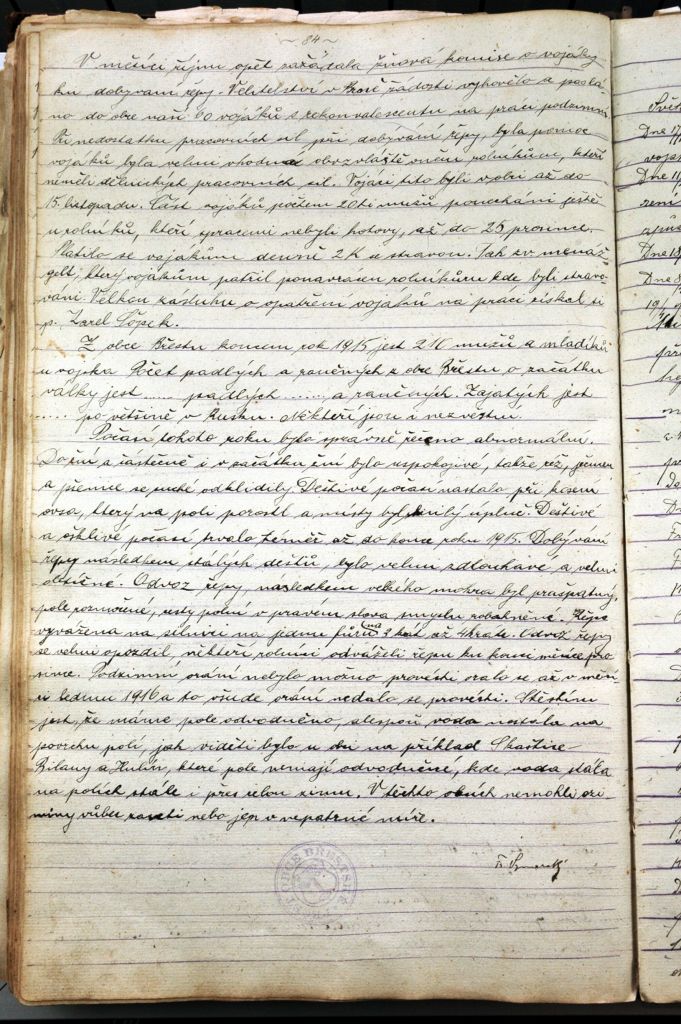 ~ 84 ~
V měsíci říjnu opět zažádala žňová komise o vojáky
ku dobývání řepy. Velitelství v žádosti vyhovělo a poslá-
no do obce naší 60 vojáků z rekonvalescentu na práci podzimní
Při nedostatku pracovních sil při dobývání řepy, byla pomoc
vojáků byla velmi vhodná obvzvláště oněm rolníkům, kteří
neměli dělnických pracovních sil. Vojáci tito byli v obci až do
15. listopadu. Část vojáků počtem 20ti mužů ponecháni ještě
u rolníků, kteří s pracemi nebyli hotovy, až do 25 prosince.
Platilo se vojákům denně 2 K a stravou. Tak zv. menáž-
geld, který vojákům patřil ponavrácen rolníkům kde byli stravo-
váni. Velkou zásluhu o opatření vojáků na práci získal si
p. Karel
Z obce Břestu koncem rok 1915 jest 210 mužů a mladíků
u vojska Počet padlých a raněných z obce Břestu o začátku
války jest ...... padlých ......... a raněných. Zajatých jest
...... po většině v Rusku. Někteří jsou i nezvěstní.
Počasí tohoto roku bylo správně řečeno abnormální.
Do žní a částečně i v začátku žní bylo uspokojivé, takže rež, ječmen
a pšenice se suché odklidily. Deštivé počasí nastalo při kosení
ovsa, který na poli porostl a místy byl shnilý úplně. Deštivé
a ošklivé počasí trvalo téměř až do konce roku 1915. Dobývání
řepy následkem stálých deštů, bylo velmi zdlouhavé a velmi
obtížné. Odvoz řepy, následkem velkého mokra byl prašpatný,
pole rozmočené, cesty polní v pravém slova smyslu rozbahněné. Řepa
vyvážena na silnici na jednu fůru na 3 krát až 4 krate. Odvoz řepy
se velmi opozdil, někteří rolníci odváželi řepu ku konci měsíce pro-
since. Podzimní orání nebylo možno provésti oralo se až v měsí-
ci lednu 1916 a to všude orání nedalo se provésti. Štěstím
jest, že máme pole odvodněno, alespoň voda nestála na
povrchu polí, jak viděti bylo u obcí na příklad Skaštice-
Bílany a Hulín, které pole nemají odvodněné, kde voda stála
na polích stále i přes celou zimu. V těchto obcích nemohli ozi-
miny vůbec zaseti nebo jen v nepatrné míře.